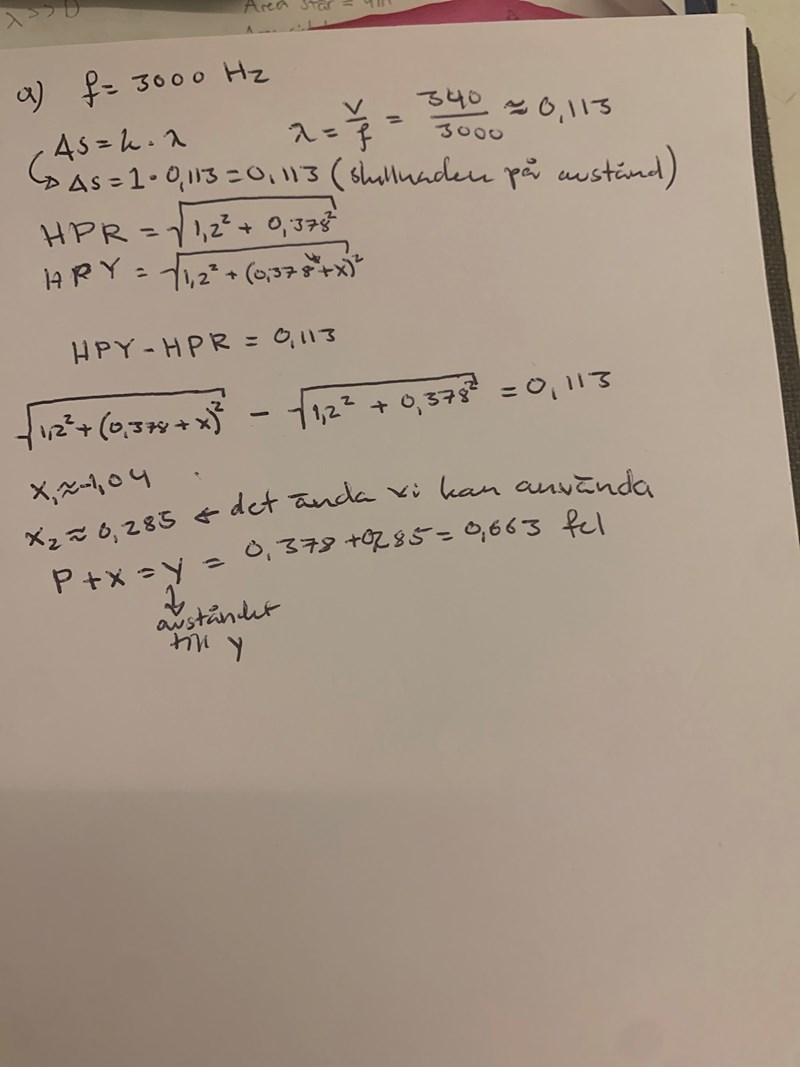 λ>>D
Area stor =
a) f = 3000 Hz
λ = v/f = 340/3000 ≈ 0,113
Δs = k · λ
↳ Δs = 1 · 0,113 = 0,113 (skillnaden på avstånd)
HPR = √(1,2² + 0,378²)
HPY = √(1,2² + (0,378 + x)²)
HPY - HPR = 0,113
√(1,2² + (0,378 + x)²) - √(1,2² + 0,378²) = 0,113
x₁ ≈ -1,04
x₂ ≈ 0,285 ← det ända vi kan använda
P + x = y = 0,378 + 0,285 = 0,663 fel
↓
avståndet
till y